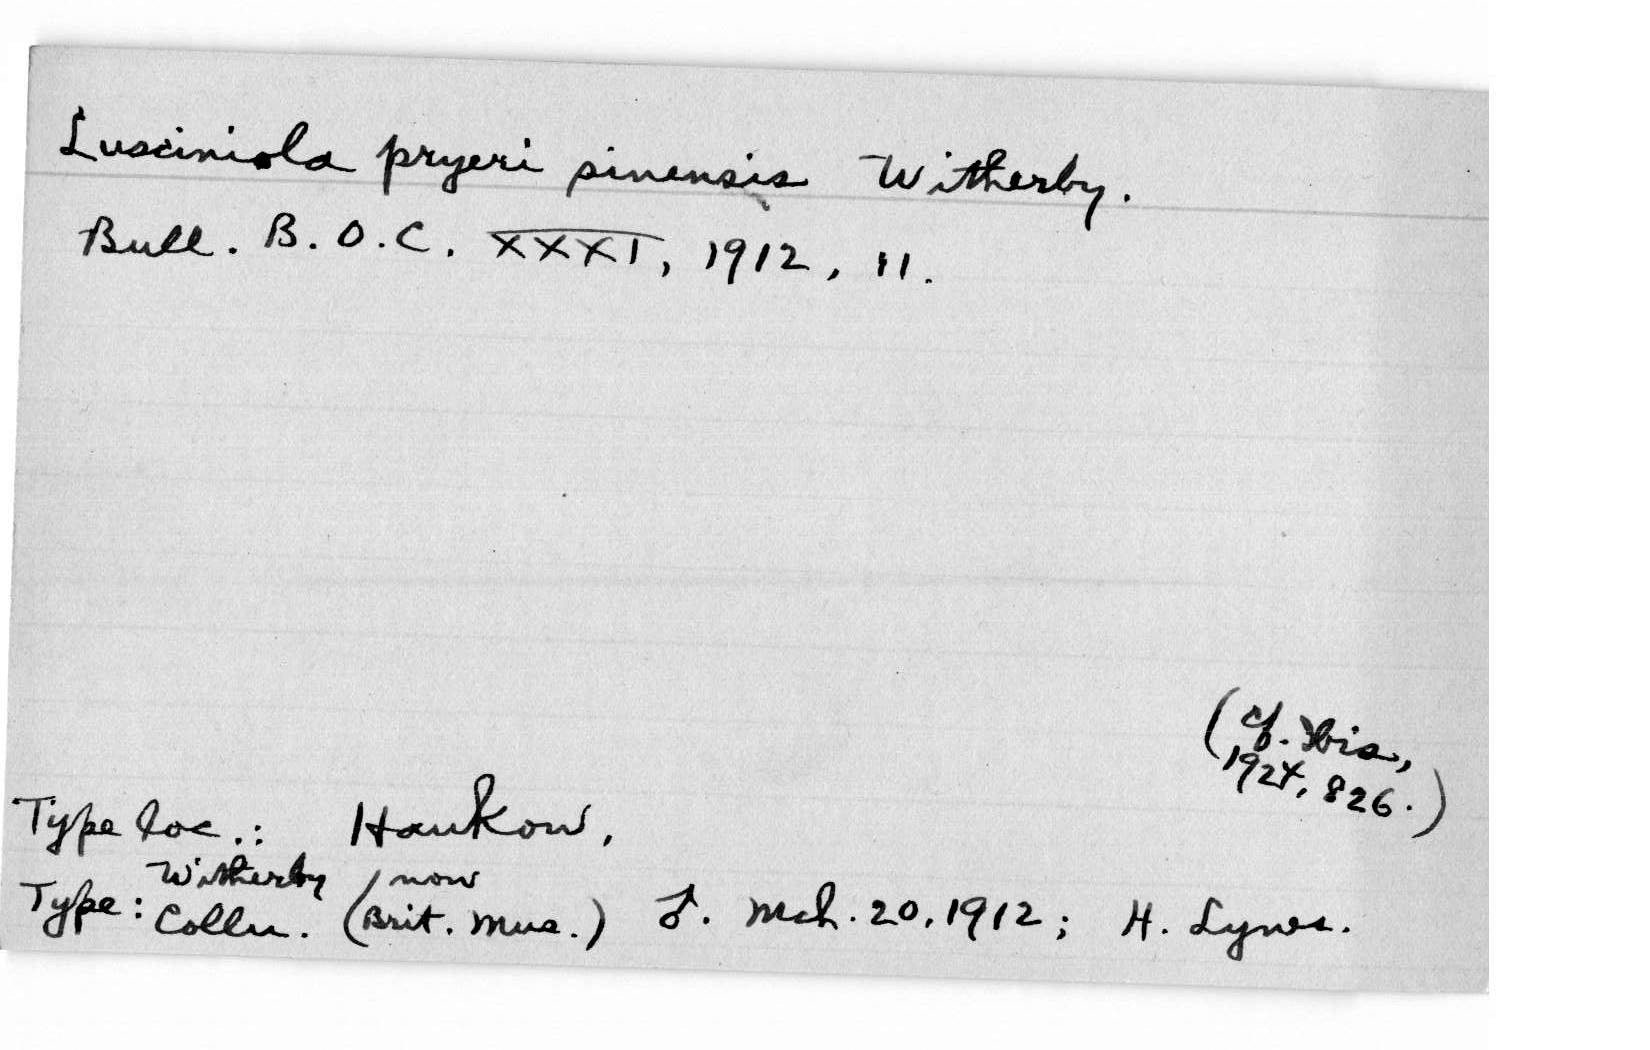 Lusciniola pryeri sinensis Witherby.
Bull. B.O.C. XXXI, 1912, 11.
(cf. Ibis,
1924, 826.)
Type loc.: Hankow.
Type: Witherby Colln. (now Brit. Mus.) ♂. Mch. 20, 1912; H. Lynes.